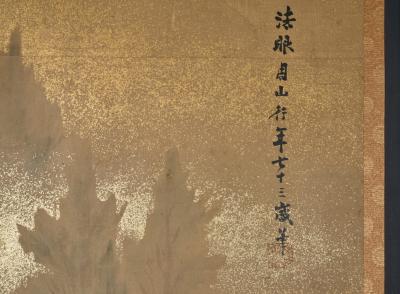 法眼周山行年七十三歳筆